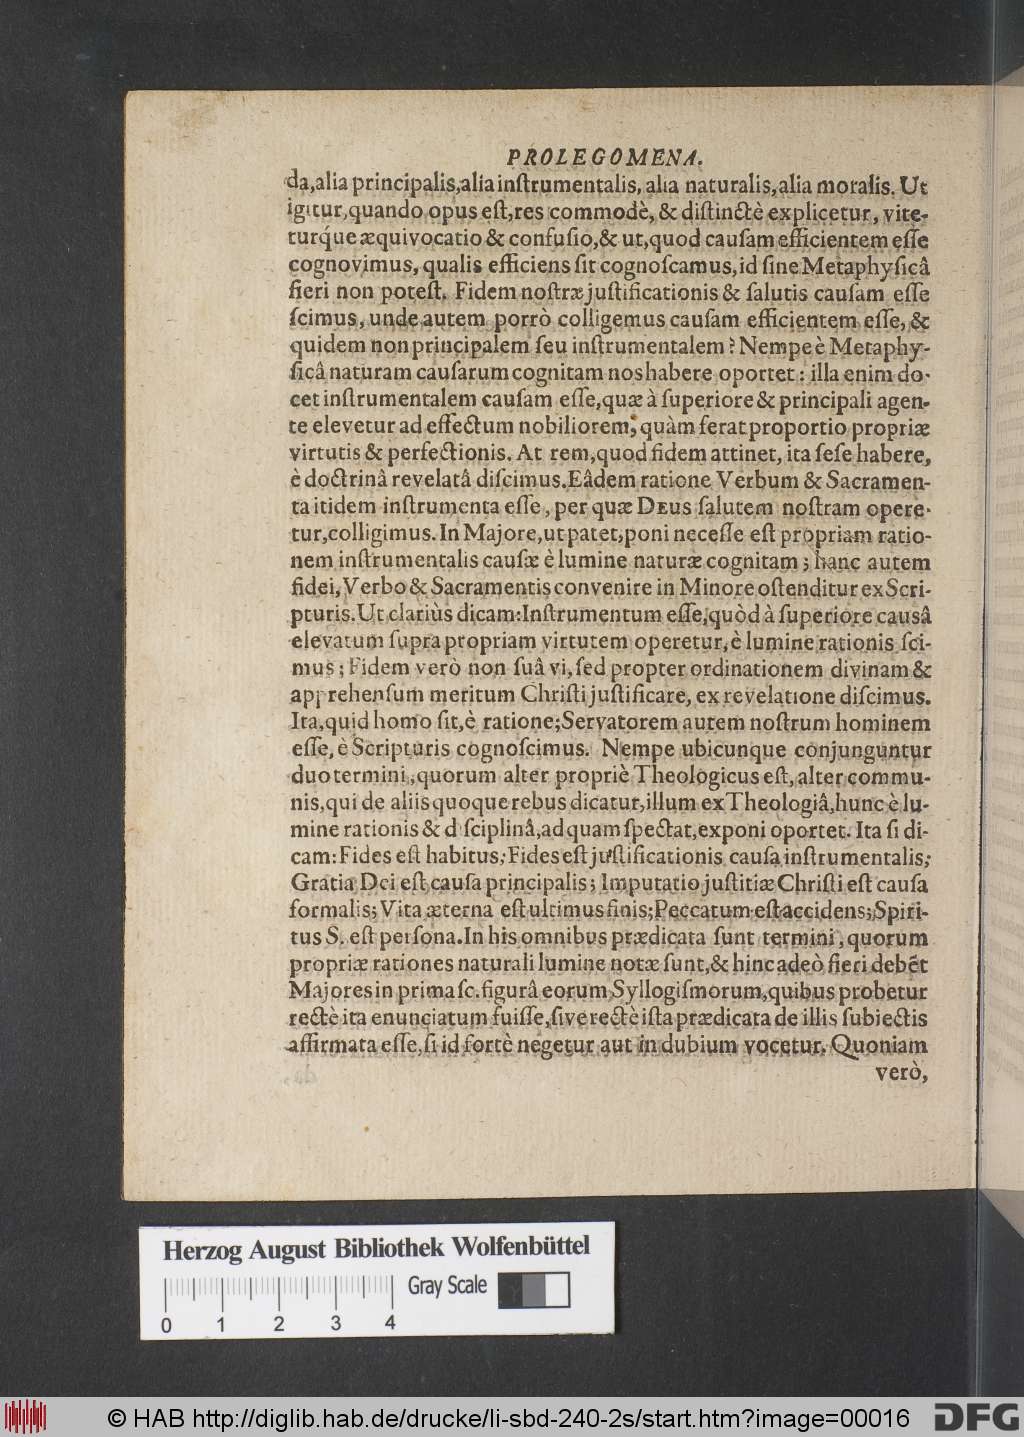 PROLEGOMENA.
da,alia principalis,alia inſtrumentalis, alia naturalis,alia moralis. Ut
igitur,quando opus eſt,res commodè, & diſtinctè explicetur, vite-
turq́ue æquivocatio & confuſio,& ut,quod cauſam efficientem eſſe
cognovimus, qualis efficiens ſit cognoſcamus,id ſine Metaphyſicâ
fieri non poteſt. Fidem noſtræ juſtificationis & ſalutis cauſam eſſe
ſcimus, unde autem porrò colligemus cauſam efficientem eſſe, &
quidem non principalem ſeu inſtrumentalem? Nempe è Metaphy-
ſicâ naturam cauſarum cognitam nos habere oportet: illa enim do-
cet inſtrumentalem cauſam eſſe,quæ à ſuperiore & principali agen-
te elevetur ad effectum nobiliorem, quàm ferat proportio propriæ
virtutis & perfectionis. At rem,quod fidem attinet, ita ſeſe habere,
è doctrinâ revelatâ diſcimus.Eâdem ratione Verbum & Sacramen-
ta itidem inſtrumenta eſſe, per quæ DEUS ſalutem noſtram opere-
tur,colligimus. In Majore,ut patet,poni neceſſe eſt propriam ratio-
nem inſtrumentalis cauſæ è lumine naturæ cognitam; hanc autem
fidei,Verbo & Sacramentis convenire in Minore oſtenditur ex Scri-
pturis.Ut clariùs dicam:Inſtrumentum eſſe,quòd à ſuperiore causâ
elevatum ſupra propriam virtutem operetur,è lumine rationis ſci-
mus; Fidem verò non ſuâ vi, ſed propter ordinationem divinam &
apprehenſum meritum Chriſti juſtificare, ex revelatione diſcimus.
Ita,quid homo ſit,è ratione;Servatorem autem noſtrum hominem
eſſe, è Scripturis cognoſcimus. Nempe ubicunque conjunguntur
duo termini, quorum alter propriè Theologicus eſt, alter commu-
nis,qui de aliis quoque rebus dicatur,illum ex Theologiâ,hunc è lu-
mine rationis & d ſciplinâ,ad quam ſpectat,exponi oportet. Ita ſi di-
cam: Fides eſt habitus; Fides eſt juſtificationis cauſa inſtrumentalis;
Gratia Dei eſt cauſa principalis; Imputatio juſtitiæ Chriſti eſt cauſa
formalis; Vita æterna eſt ultimus finis;Peccatum eſt accidens;Spiri-
tus S. eſt perſona.In his omnibus prædicata ſunt termini, quorum
propriæ rationes naturali lumine notæ ſunt,& hinc adeò fieri debēt
Majores in prima ſc. figurâ eorum Syllogiſmorum,quibus probetur
rectè ita enunciatum fuiſſe,ſive rectè iſta prædicata de illis ſubiectis
affirmata eſſe,ſi id fortè negetur aut in dubium vocetur. Quoniam
verò,
Herzog August Bibliothek Wolfenbüttel
Gray Scale
0 1 2 3 4
© HAB http://diglib.hab.de/drucke/li-sbd-240-2s/start.htm?image=00016
DFG